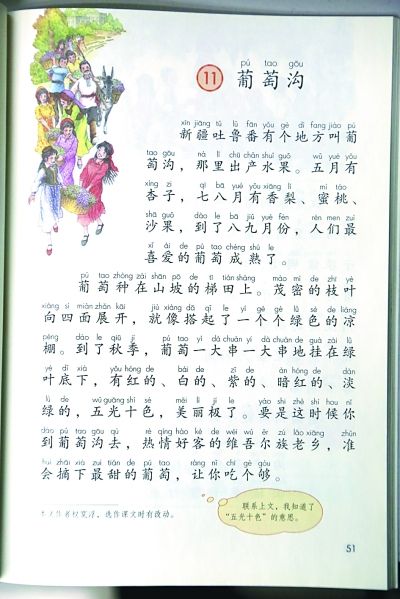 pú tao gōu
11 葡萄沟
xīn jiāng tǔ lǔ fān yǒu gè dì fang jiào pú
新疆吐鲁番有个地方叫葡
tao gōu nà lǐ chū chǎn shuǐ guǒ wǔ yuè yǒu
萄沟，那里出产水果。五月有
xìng zi qī bā yuè yǒu xiāng lí mì táo
杏子，七八月有香梨、蜜桃、
shā guǒ dào le bā jiǔ yuè fèn rén men zuì
沙果，到了八九月份，人们最
xǐ ài de pú tao chéng shú le
喜爱的葡萄成熟了。
pú tao zhòng zài shān pō de tī tián shàng mào mì de zhī yè
葡萄种在山坡的梯田上。茂密的枝叶
xiàng sì miàn zhǎn kāi jiù xiàng dā qǐ le yí gè gè lǜ sè de liáng
向四面展开，就像搭起了一个个绿色的凉
péng dào le qiū jì pú tao yí dà chuàn yí dà chuàn de guà zài lǜ
棚。到了秋季，葡萄一大串一大串地挂在绿
yè dǐ xià yǒu hóng de bái de zǐ de àn hóng de dàn
叶底下，有红的、白的、紫的、暗红的、淡
lǜ de wǔ guāng shí sè měi lì jí le yào shi zhè shí hou nǐ
绿的，五光十色，美丽极了。要是这时候你
dào pú tao gōu qù rè qíng hào kè de wéi wú ěr zú lǎo xiāng zhǔn
到葡萄沟去，热情好客的维吾尔族老乡，准
huì zhāi xià zuì tián de pú tao ràng nǐ chī gè gòu
会摘下最甜的葡萄，让你吃个够。
联系上文，我知道了
“五光十色”的意思。
作者权宽浮，选作课文时有改动。
51